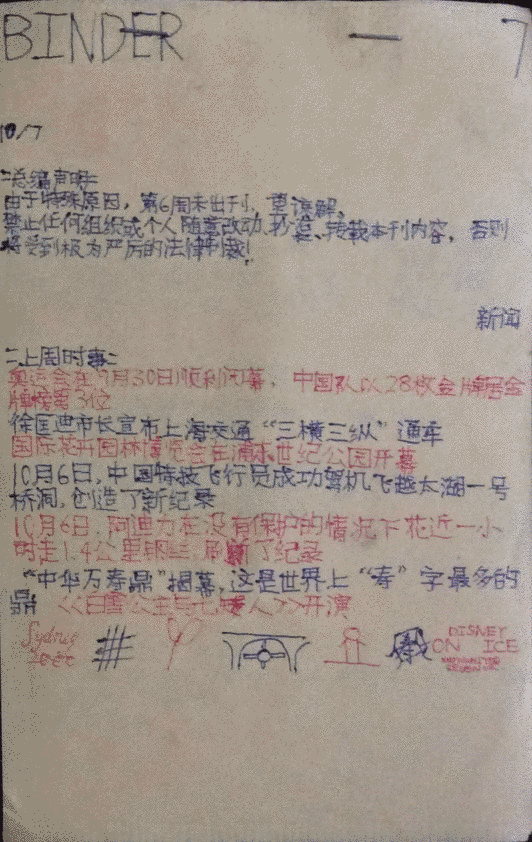 BINDER — 7
10/7
=总编声明=
由于特殊原因，第6周未出刊，望谅解。
禁止任何组织或个人随意改动、抄袭、转载本刊内容，否则
将受到极为严厉的法律制裁！
新闻
=上周时事=
奥运会在9月30日顺利闭幕，中国队以28枚金牌居金
牌榜第3位
徐匡迪市长宣布上海交通“三横三纵”通车
国际花卉园林博览会在浦东世纪公园开幕
10月6日，中国特技飞行员成功驾机飞越太湖一号
桥洞，创造了新纪录
10月6日，阿迪力在没有保护的情况下花近一小
时走1.4公里钢丝，刷新了纪录
“中华万寿鼎”揭幕，这是世界上“寿”字最多的
鼎 《白雪公主与七矮人》开演
DISNEY
ON ICE